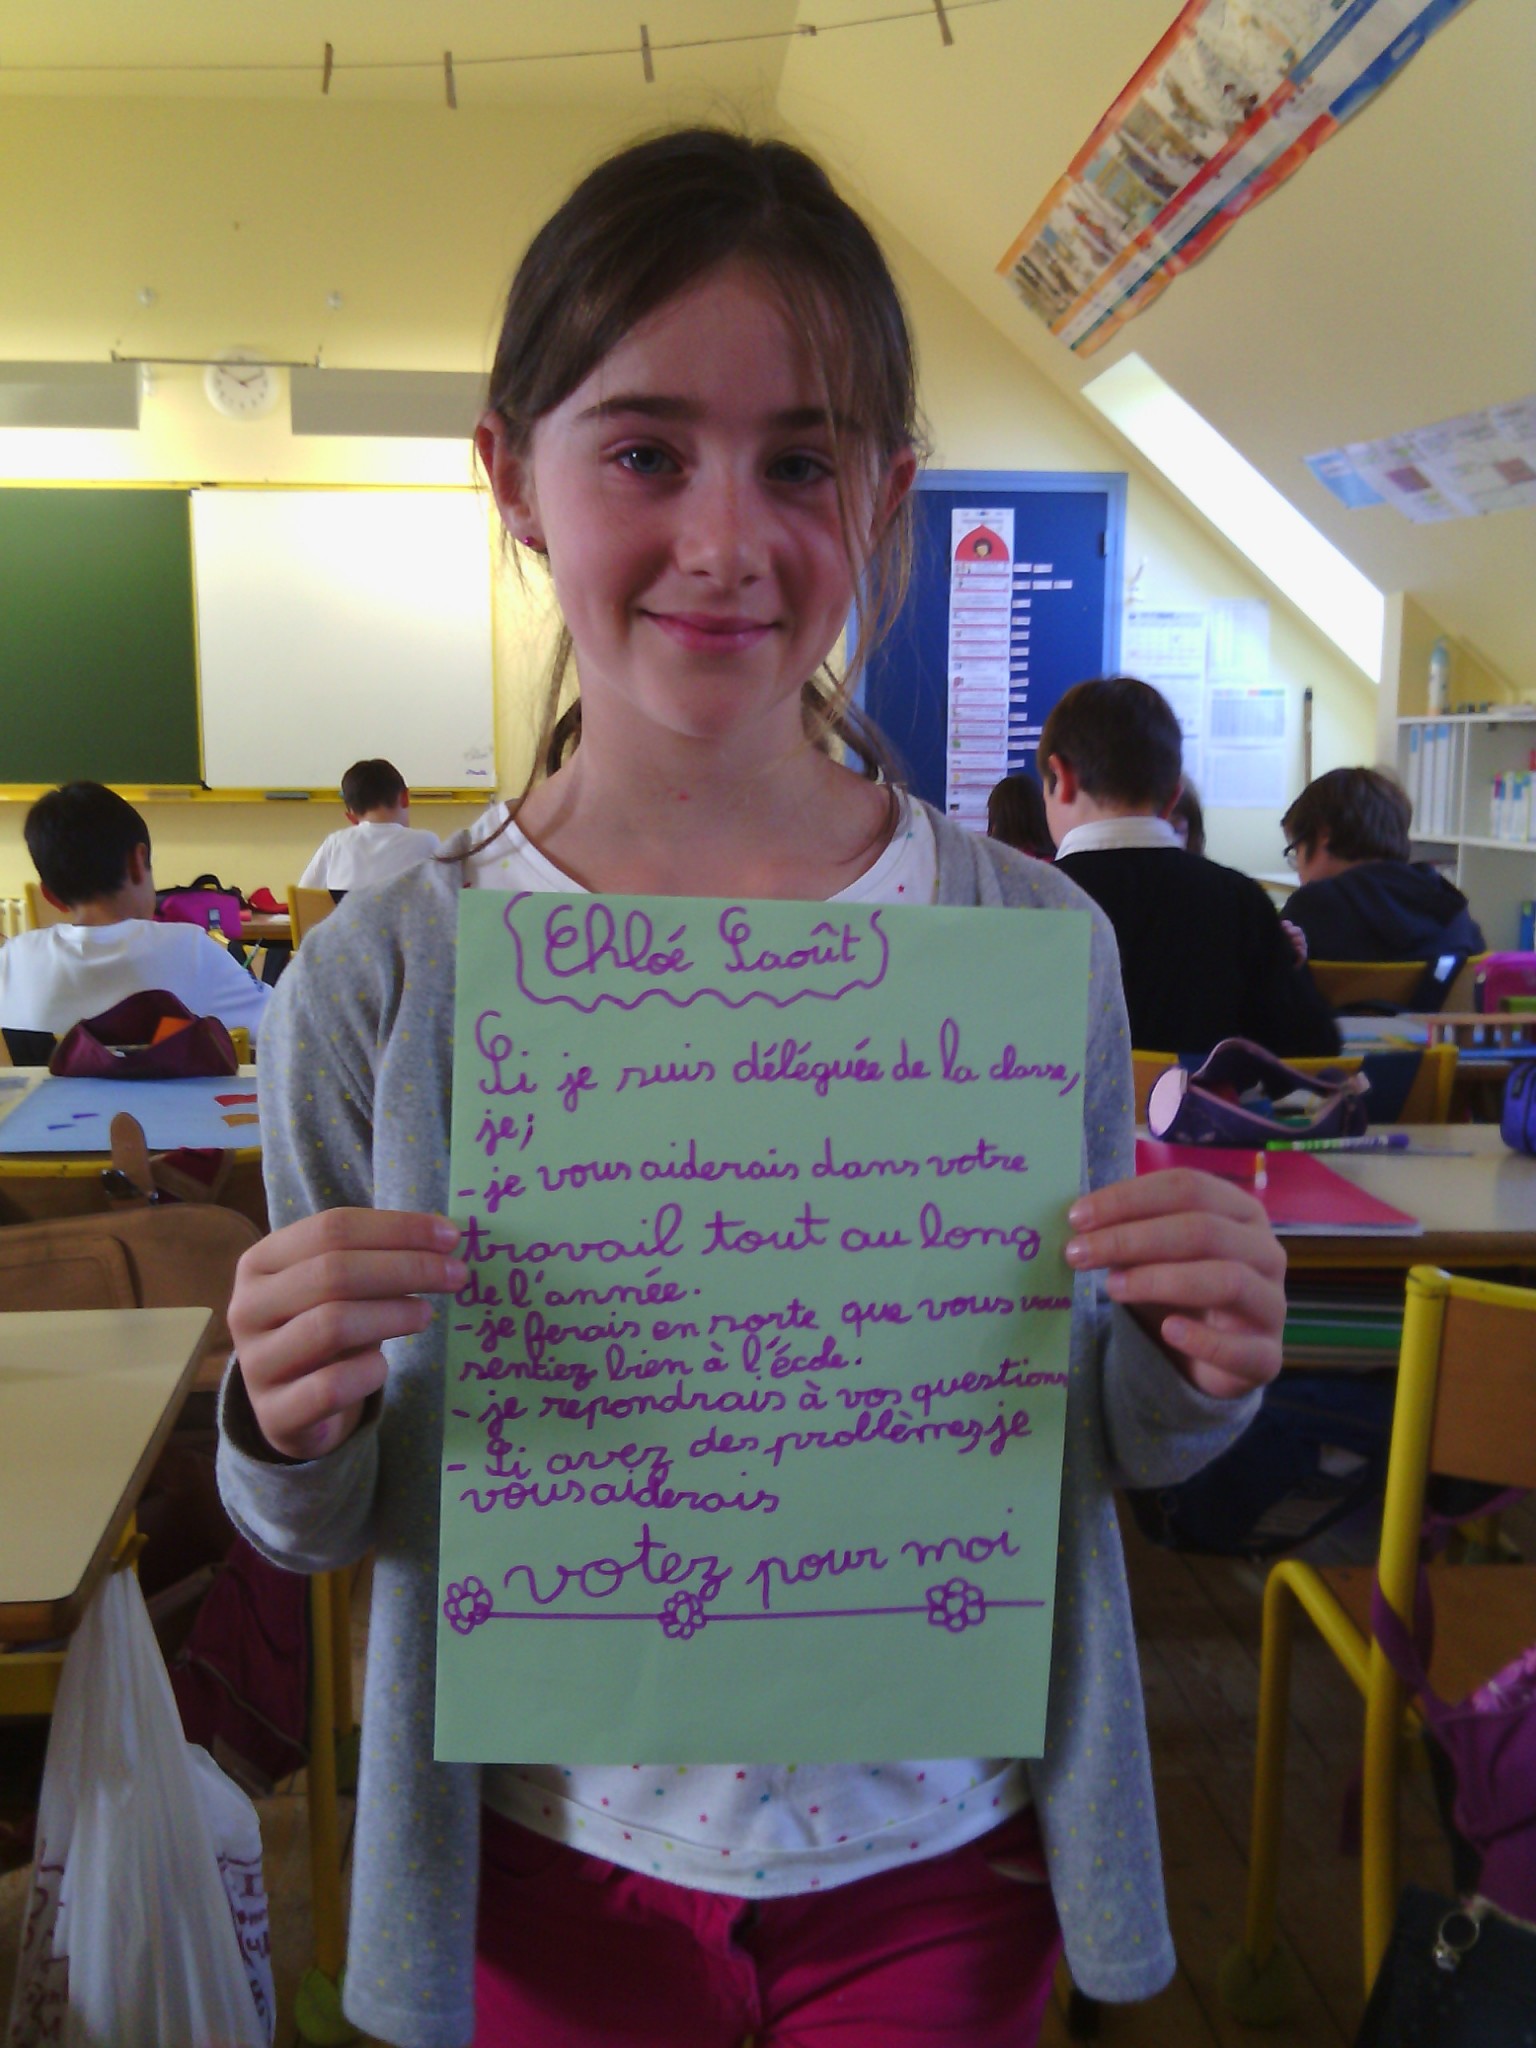 Chloé Saoût
Si je suis déléguée de la classe,
je;
- je vous aiderais dans votre
travail tout au long
de l'année.
- je ferais en sorte que vous vous
sentiez bien à l'école.
- je repondrais à vos questions
- Si avez des problèmes, je
vous aiderais
votez pour moi